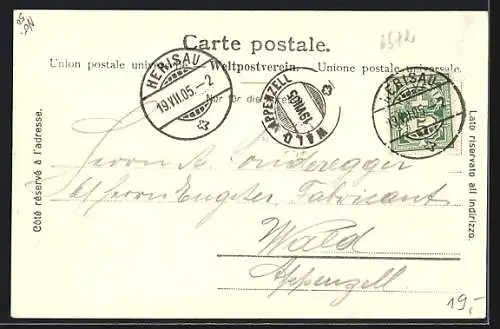 Carte postale.
Union postale universelle. — Weltpostverein. — Unione postale universale.
Nur für die Adresse.
HERISAU
19.VII.05.-2
WALD APPENZELL
19.VII.05
HERISAU
19.VII.05.-2
5
Côté réservé à l'adresse.
Lato riservato all indirizzo.
Herrn A. Sonderegger
b/ Herrn Engster, Fabricant
Wald
Appenzell.
19,-